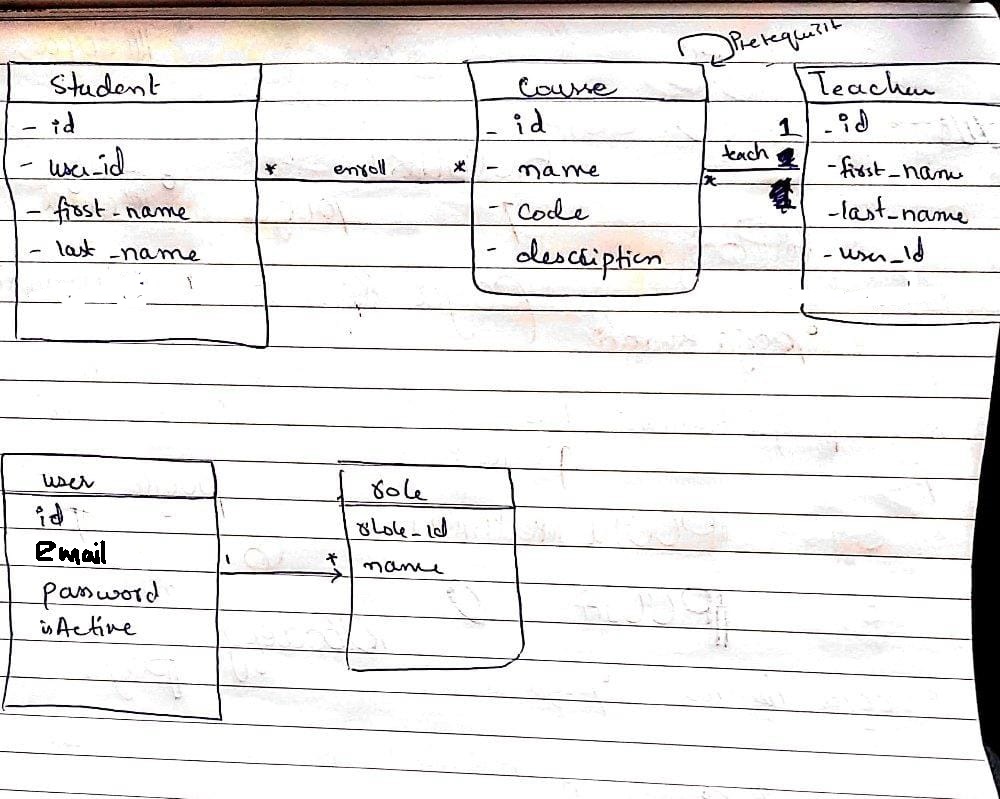 Prerequisit
Student
- id
- user_id
- first_name
- last_name
* enroll *
Course
- id
- name
- code
- description
1
teach
*
Teacher
- id
- first_name
- last_name
- user_id
user
id
Email
password
isActive
1 *
role
role_id
name